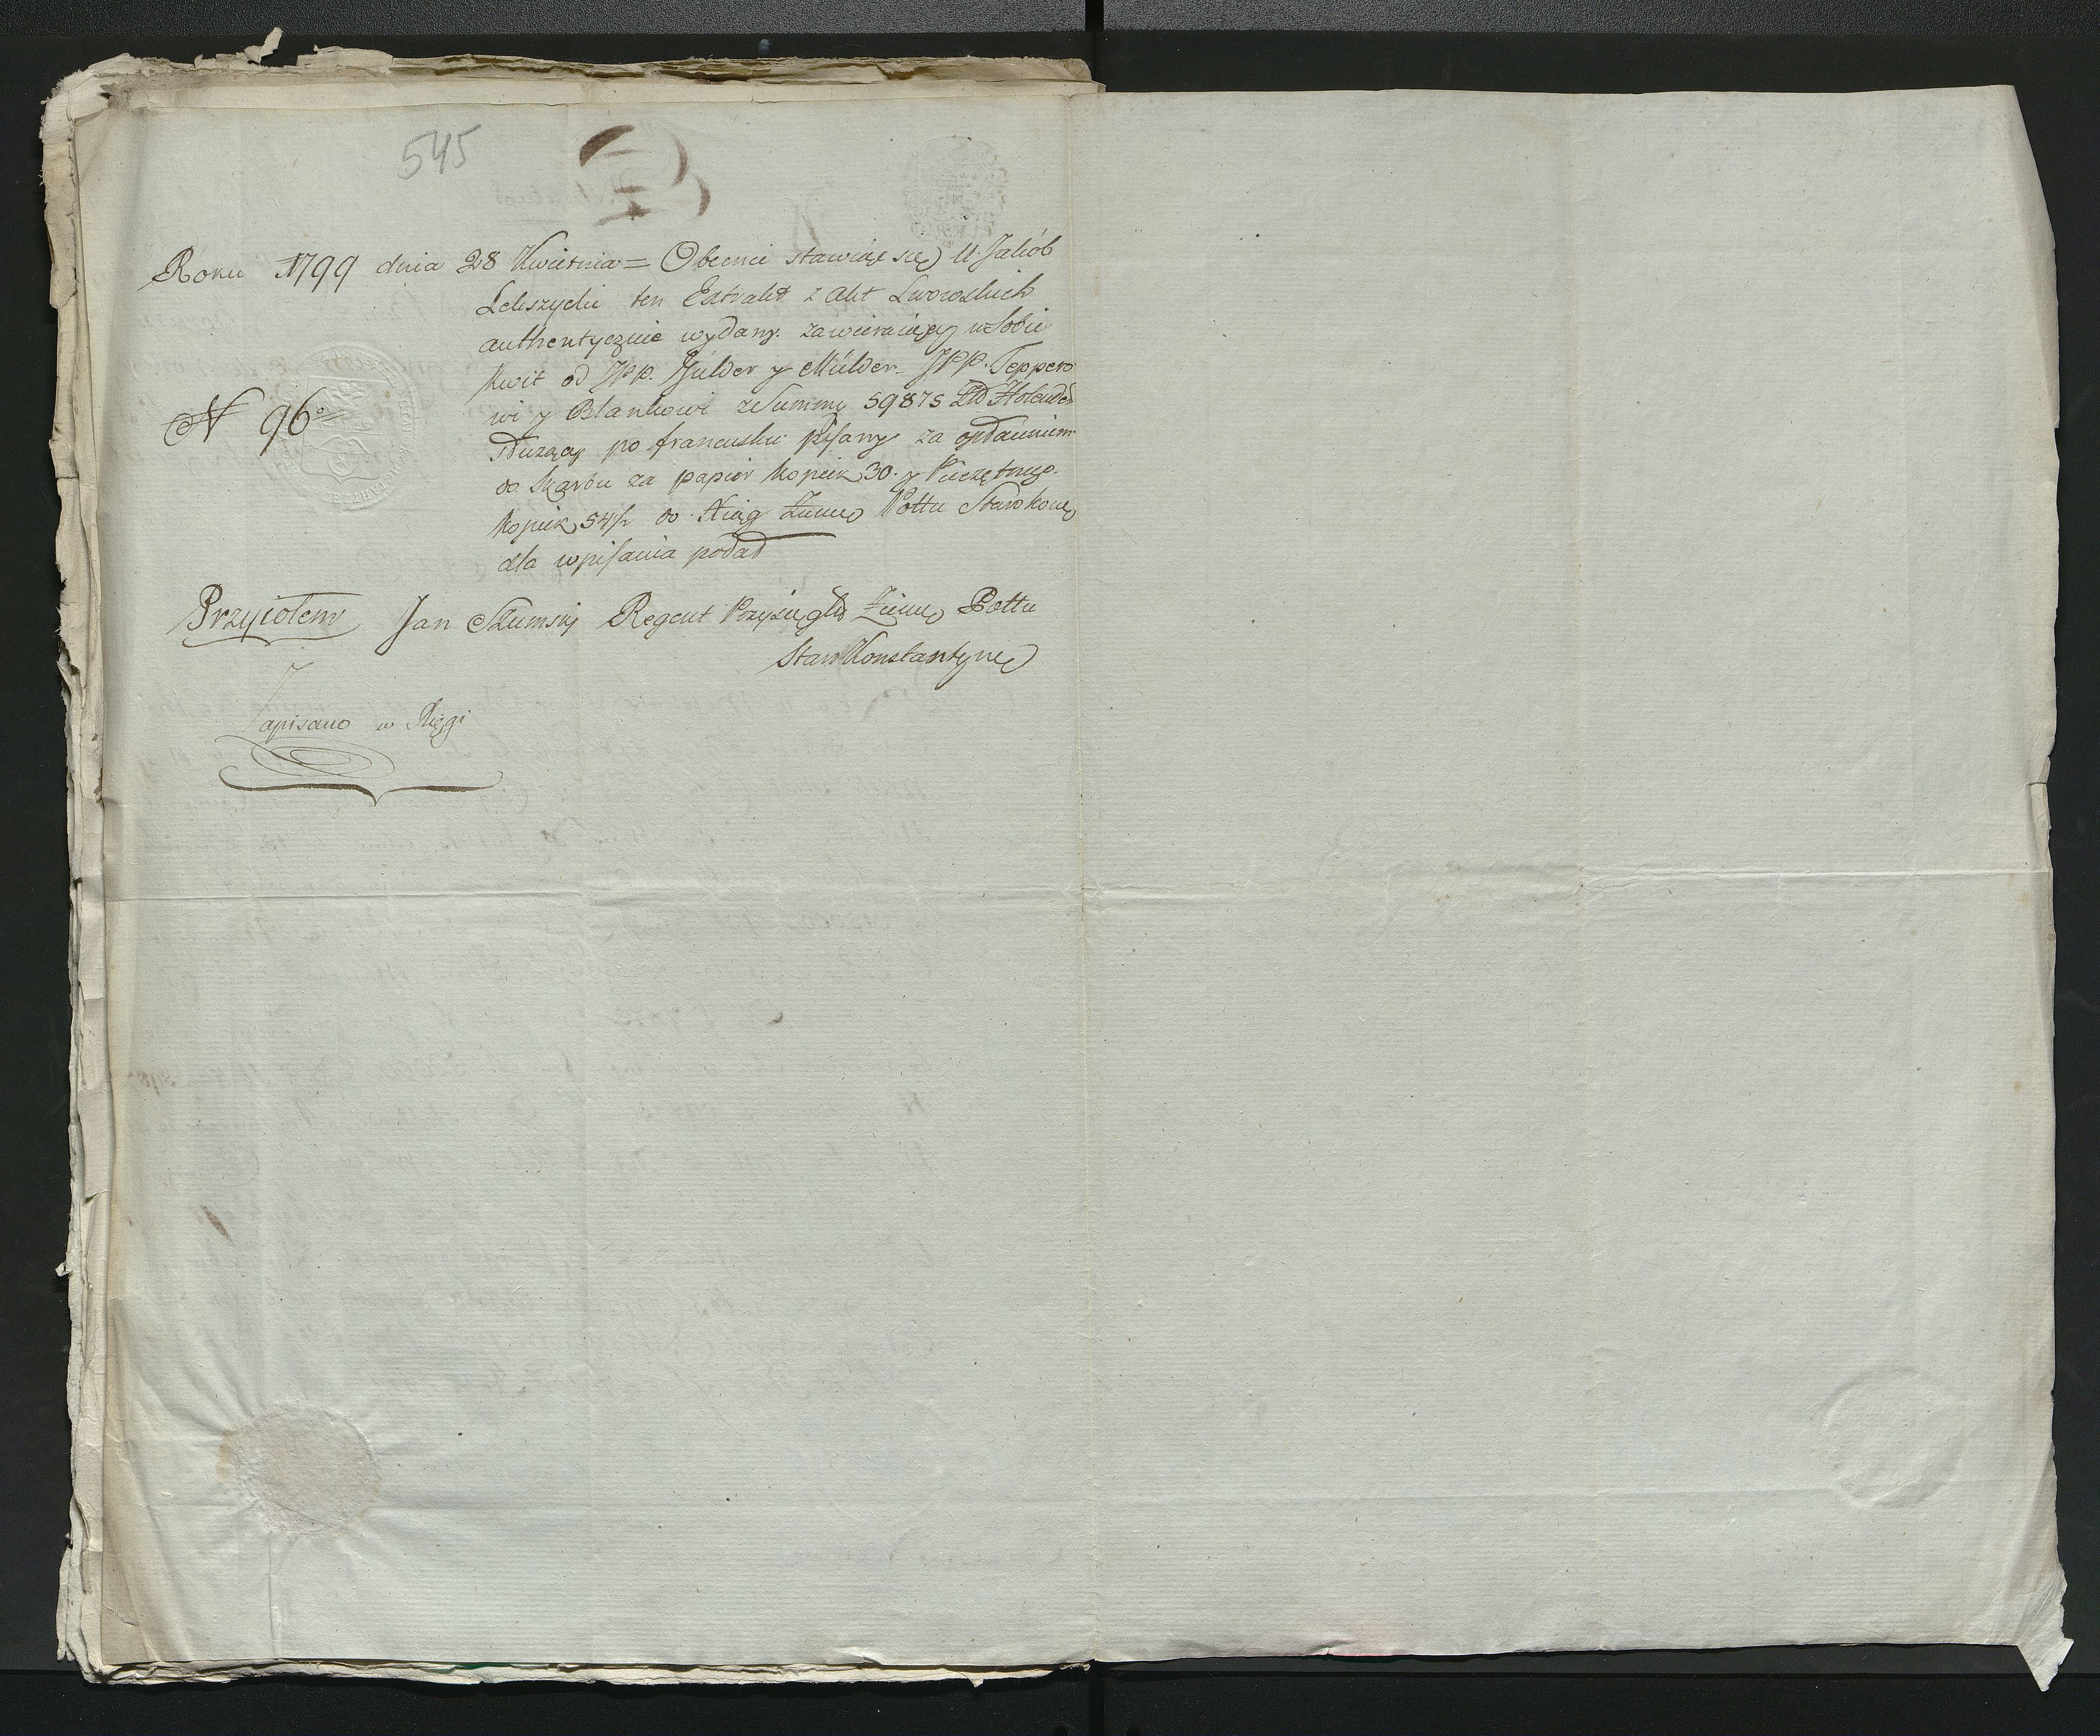 545
Roku 1799 dnia 28 Kwietnia = Obecnie stawiąc się U. Jakób
ten Extrakt z Akt Lwowskich
authentycznie wydany. zawieraiący w Sobie
Kwit od JPP. Gulder y Mülder. JPP. Teppero
wi y Blankowi ze Summy 59875
Służący po francusku pisany za opłaceniem
do Skarbu za papier Kopiiek 30. y Pieczętnego.
Kopiiek 54½ do Xiąg Ziems Pottu Starokons
dla wpisania podał
N 96o
Przyiołem Jan Regent Przysięgły Ziems Pottu
StaroKonstantyns
Zapisano w Xięgi